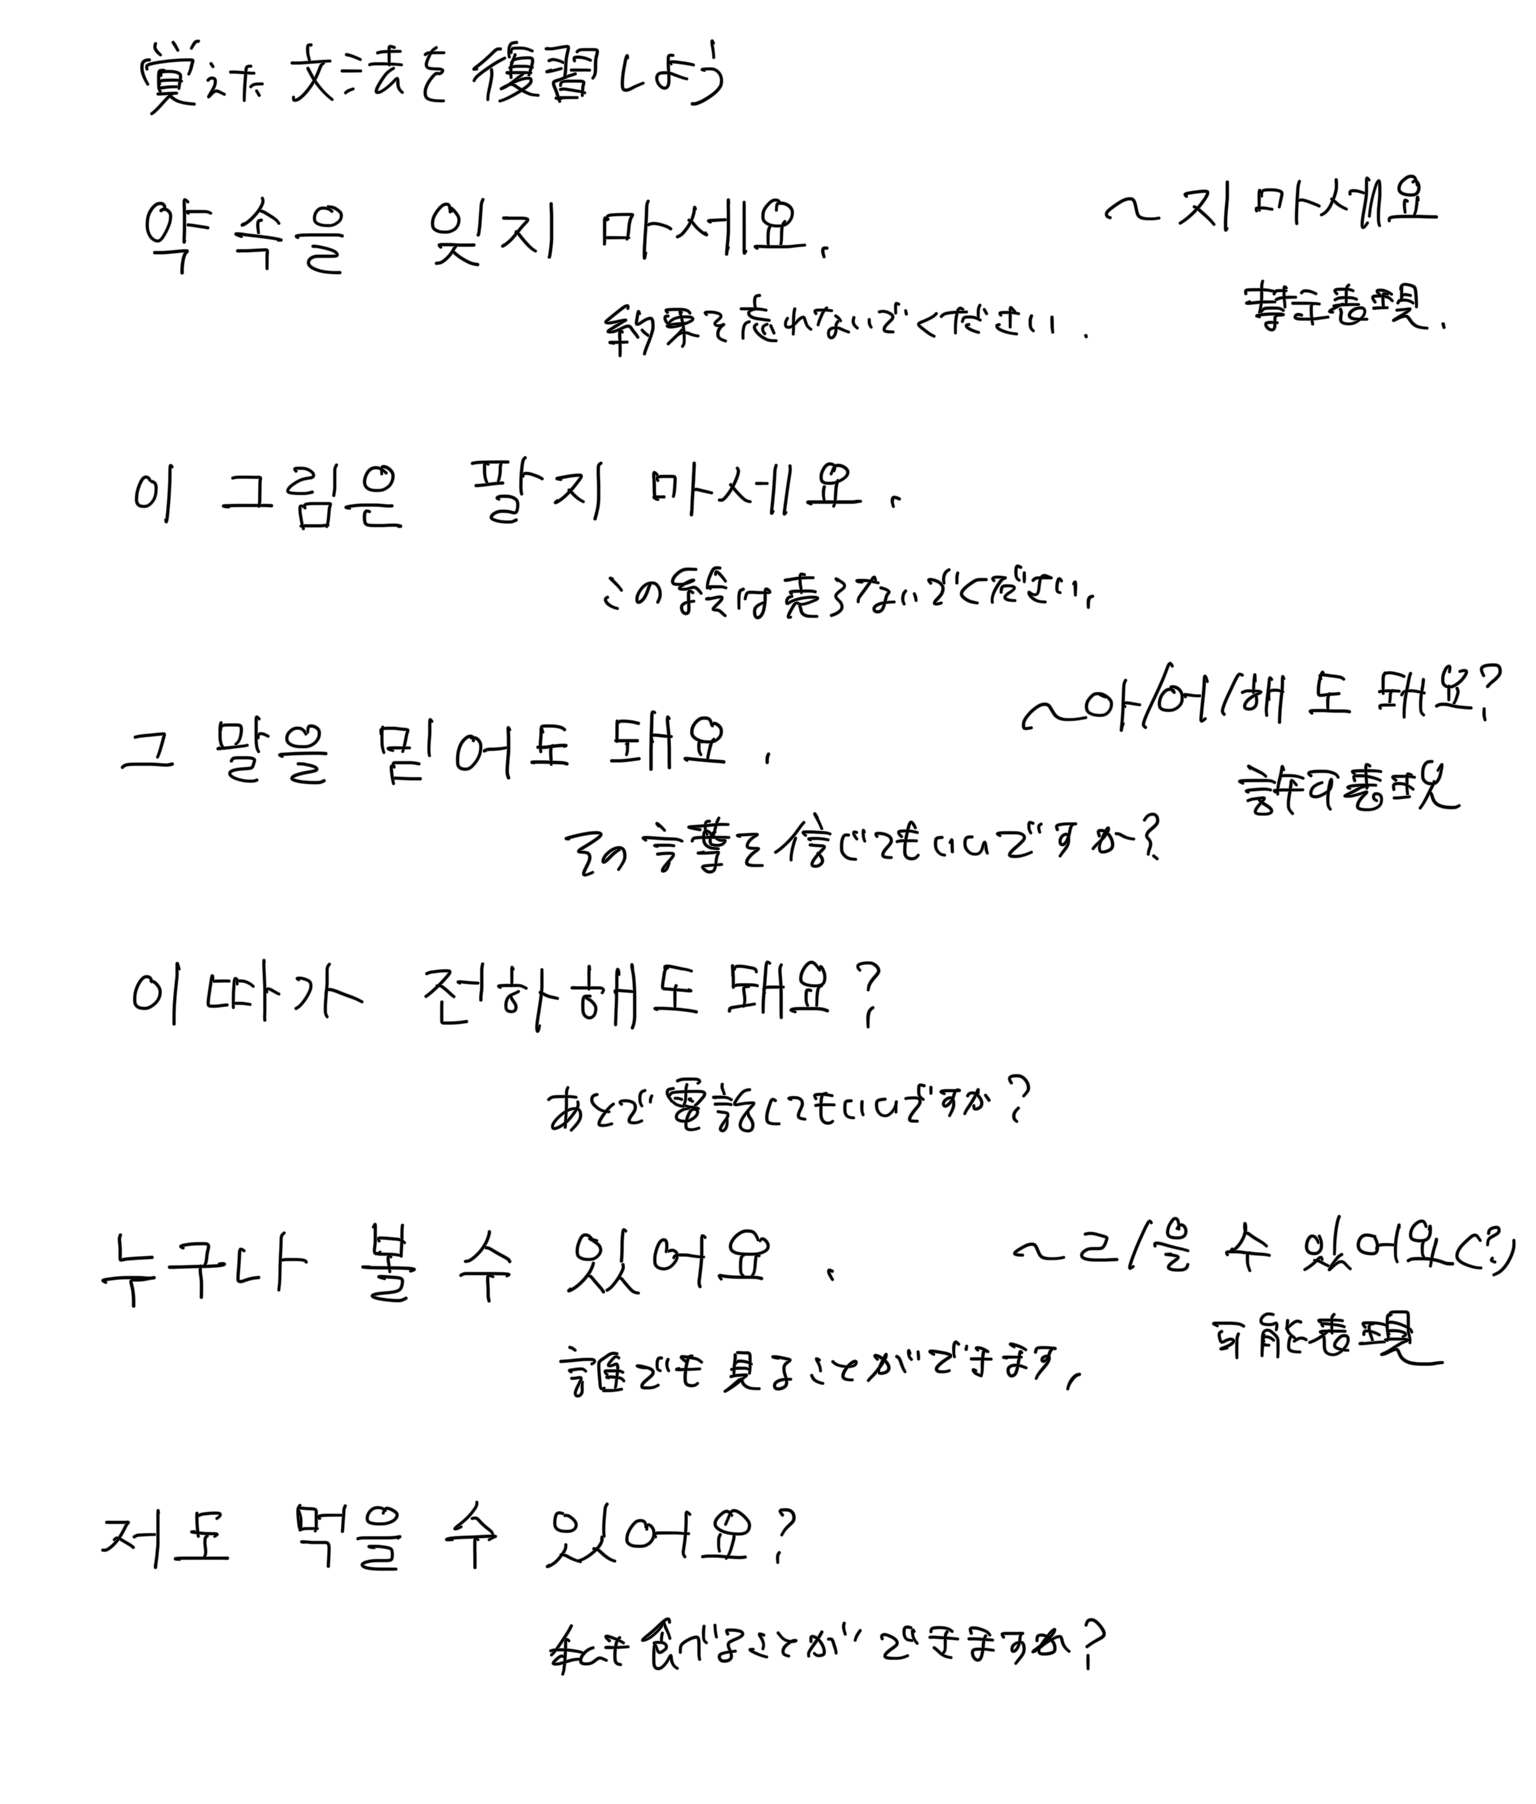 覚えた文法を復習しよう
약속을 잊지 마세요.
~지 마세요
約束を忘れないでください.
禁止表現.
이 그림은 팔지 마세요.
この絵は売らないでください.
~아/어/해 도 돼요?
그 말을 믿어도 돼요.
許可表現
その言葉を信じてもいいですか?
이따가 전하해도 돼요?
あとで電話してもいいですか?
누구나 볼 수 있어요.
~ㄹ/을 수 있어요(?)
可能表現
誰でも見ることができます.
저도 먹을 수 있어요?
私も食べることができますか?